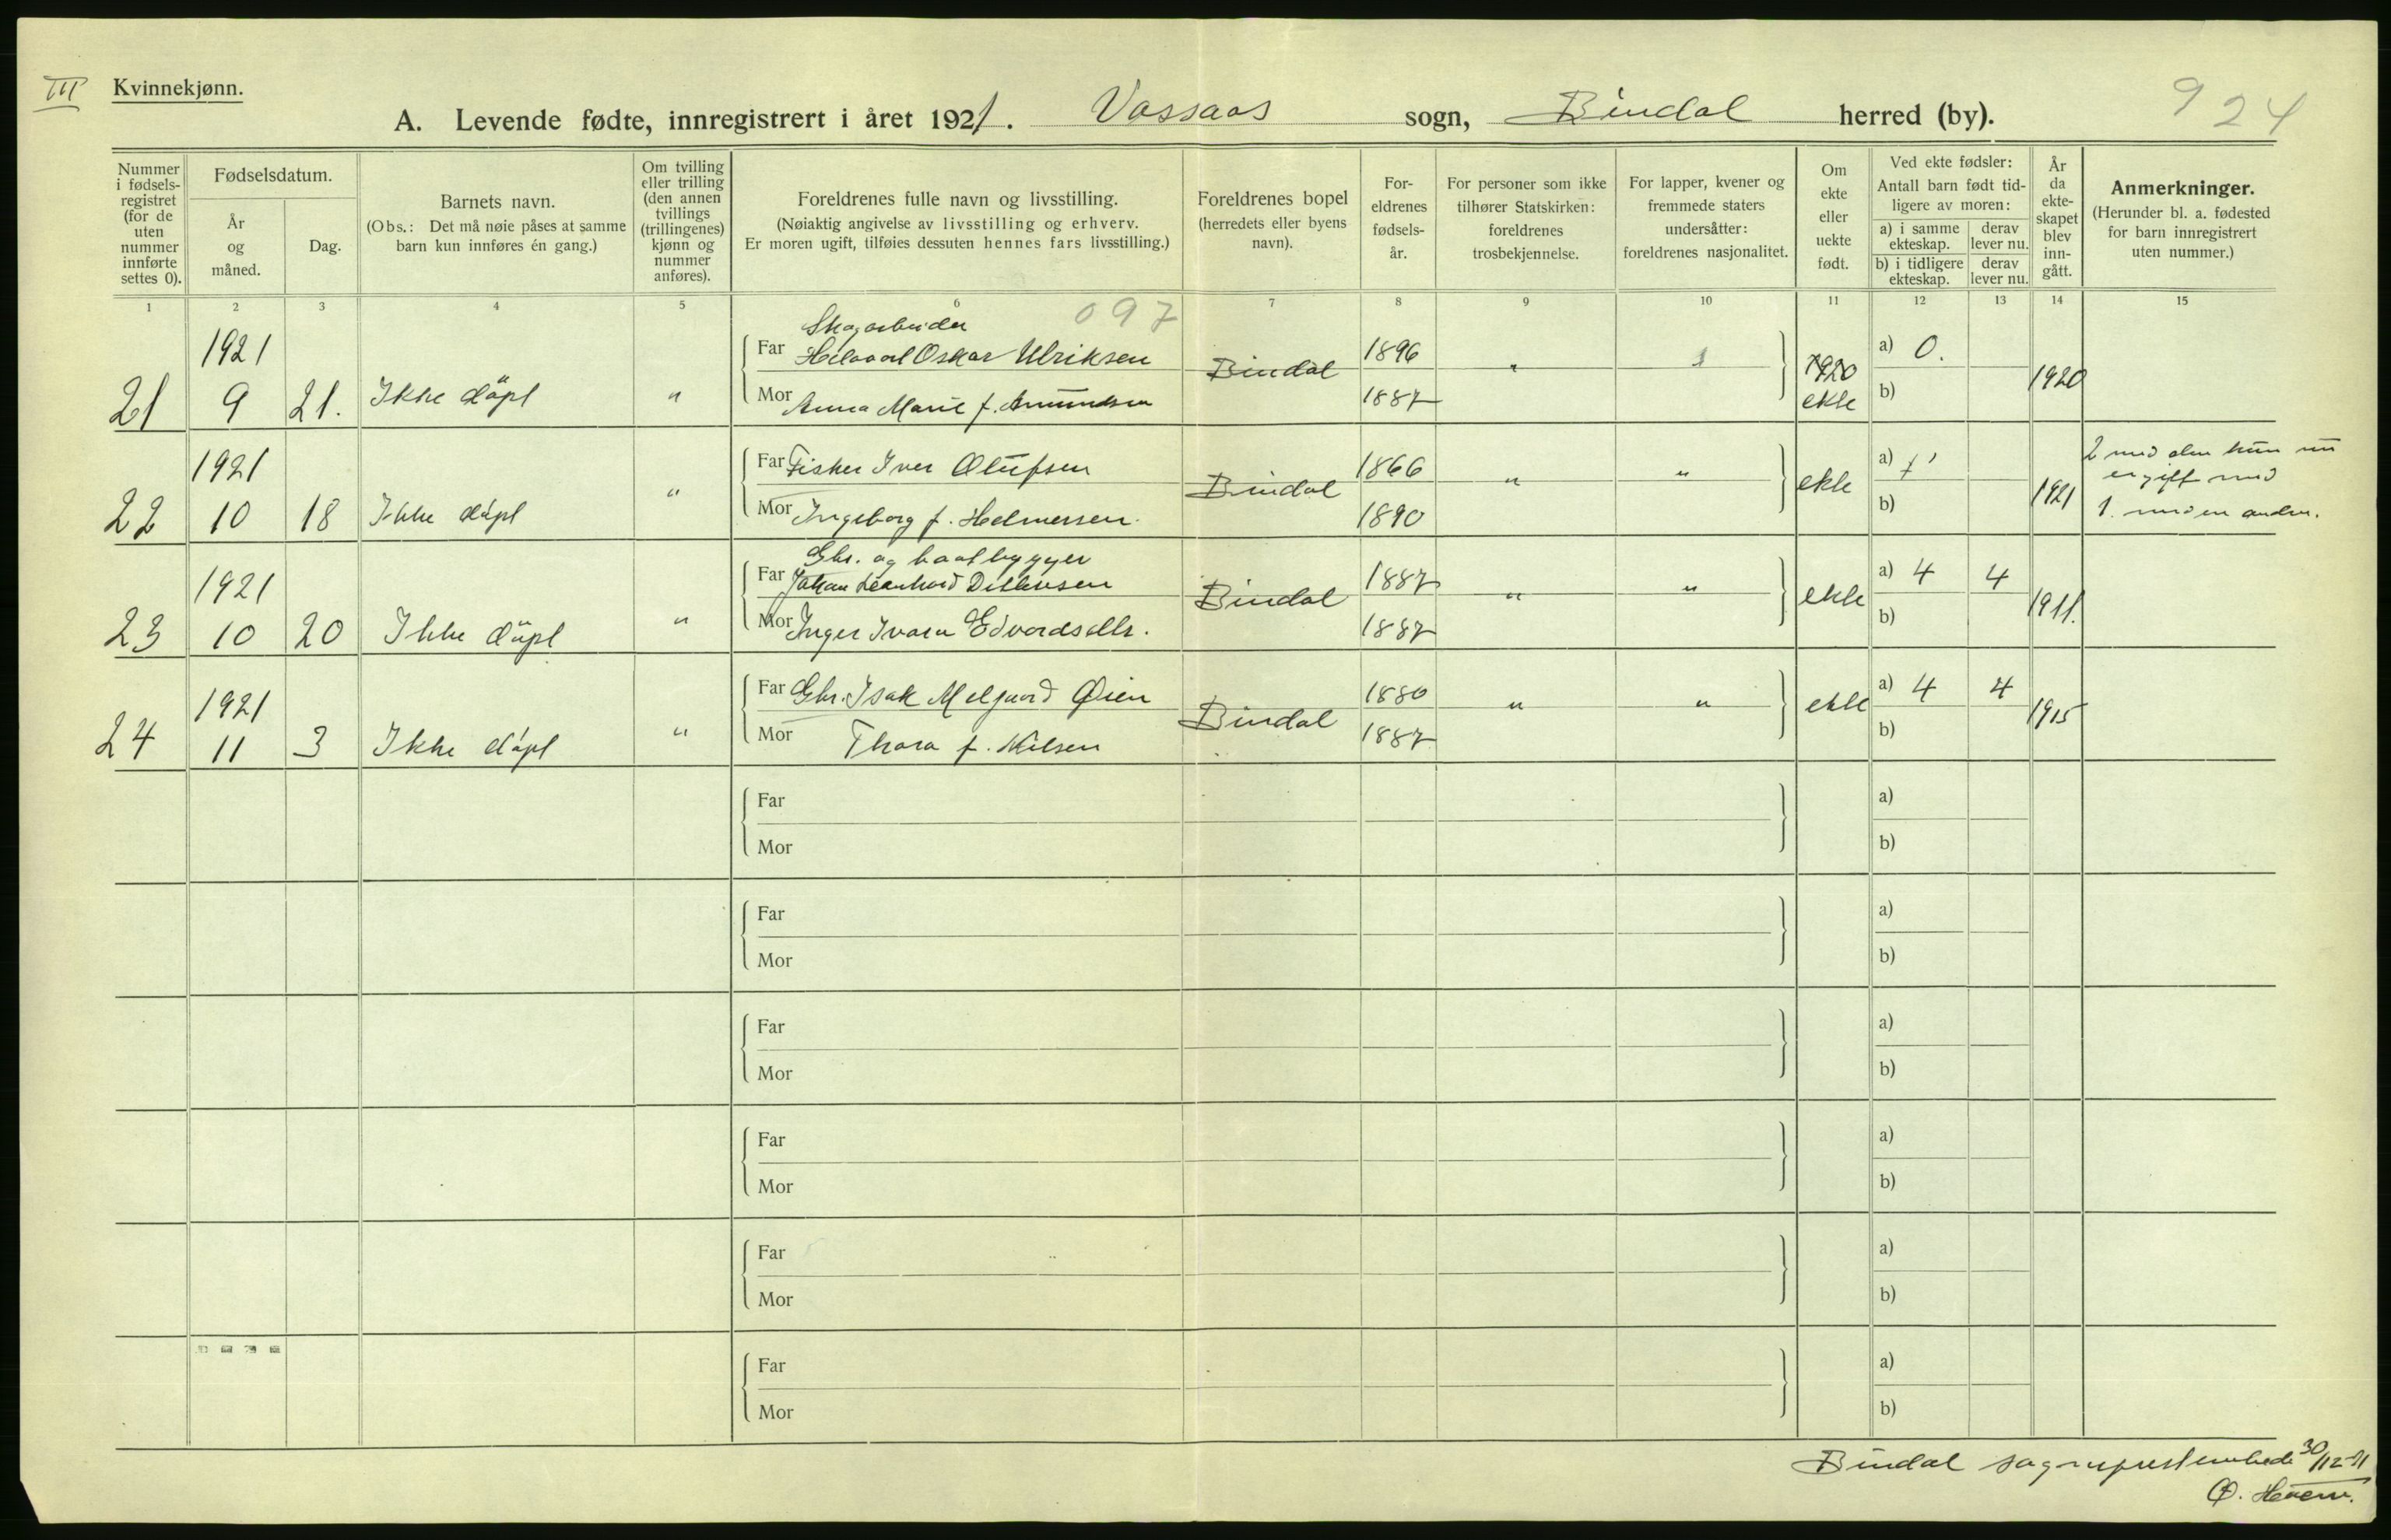 III Kvinnekjønn.
A. Levende fødte, innregistrert i året 1921. Vassaas sogn, Bindal herred (by). 924
Nummer i fødselsregistret (for de uten nummer innførte settes 0).
Fødselsdatum.
År og måned.
Dag.
Barnets navn.
(Obs.: Det må nøie påses at samme barn kun innføres én gang.)
Om tvilling eller trilling (den annen tvillings (trillingenes) kjønn og nummer anføres).
Foreldrenes fulle navn og livsstilling.
(Nøiaktig angivelse av livsstilling og erhverv.
Er moren ugift, tilføies dessuten hennes fars livsstilling.)
Foreldrenes bopel
(herredets eller byens navn).
Foreldrenes fødselsår.
For personer som ikke tilhører Statskirken: foreldrenes trosbekjennelse.
For lapper, kvener og fremmede staters undersåtter: foreldrenes nasjonalitet.
Om ekte eller uekte født.
Ved ekte fødsler:
Antall barn født tidligere av moren:
a) i samme ekteskap. derav lever nu.
b) i tidligere ekteskap. derav lever nu.
År da ekteskapet blev inngått.
Anmerkninger.
(Herunder bl. a. fødested for barn innregistrert uten nummer.)
1 2 3 4 5 6 7 8 9 10 11 12 13 14 15
097
Skogarbeider
1921 Far Oskar Ulriksen Bindal 1896 " 1920 a) 0. 1920
21 9 21. Ikke döpt " Mor Anna Marie f. Amundsen 1887 ekte b)
1921 Far Fisker Iver Olufsen Bindal 1866 " " ekte a) 1921 2 med den hun nu er gift med
22 10 18 Ikke döpt " Mor Ingeborg f. Helmersen. 1890 b) 1. med en anden.
Gbr. og baatbygger
1921 Far Johan Leonhard Ditlevsen Bindal 1887 " " ekte a) 4 4 1911.
23 10 20 Ikke döpt " Mor Inger Ivara Edvardsdtr. 1887 b)
1921 Far Gbr. Isak Melgaard Øien Bindal 1880 " " ekte a) 4 4 1915
24 11 3 Ikke döpt " Mor Thora f. Nilsen 1887 b)
Far a)
Mor b)
Far a)
Mor b)
Far a)
Mor b)
Far a)
Mor b)
Far a)
Mor b)
Far a)
Mor b)
Bindal sogneprestembede 30/12-21